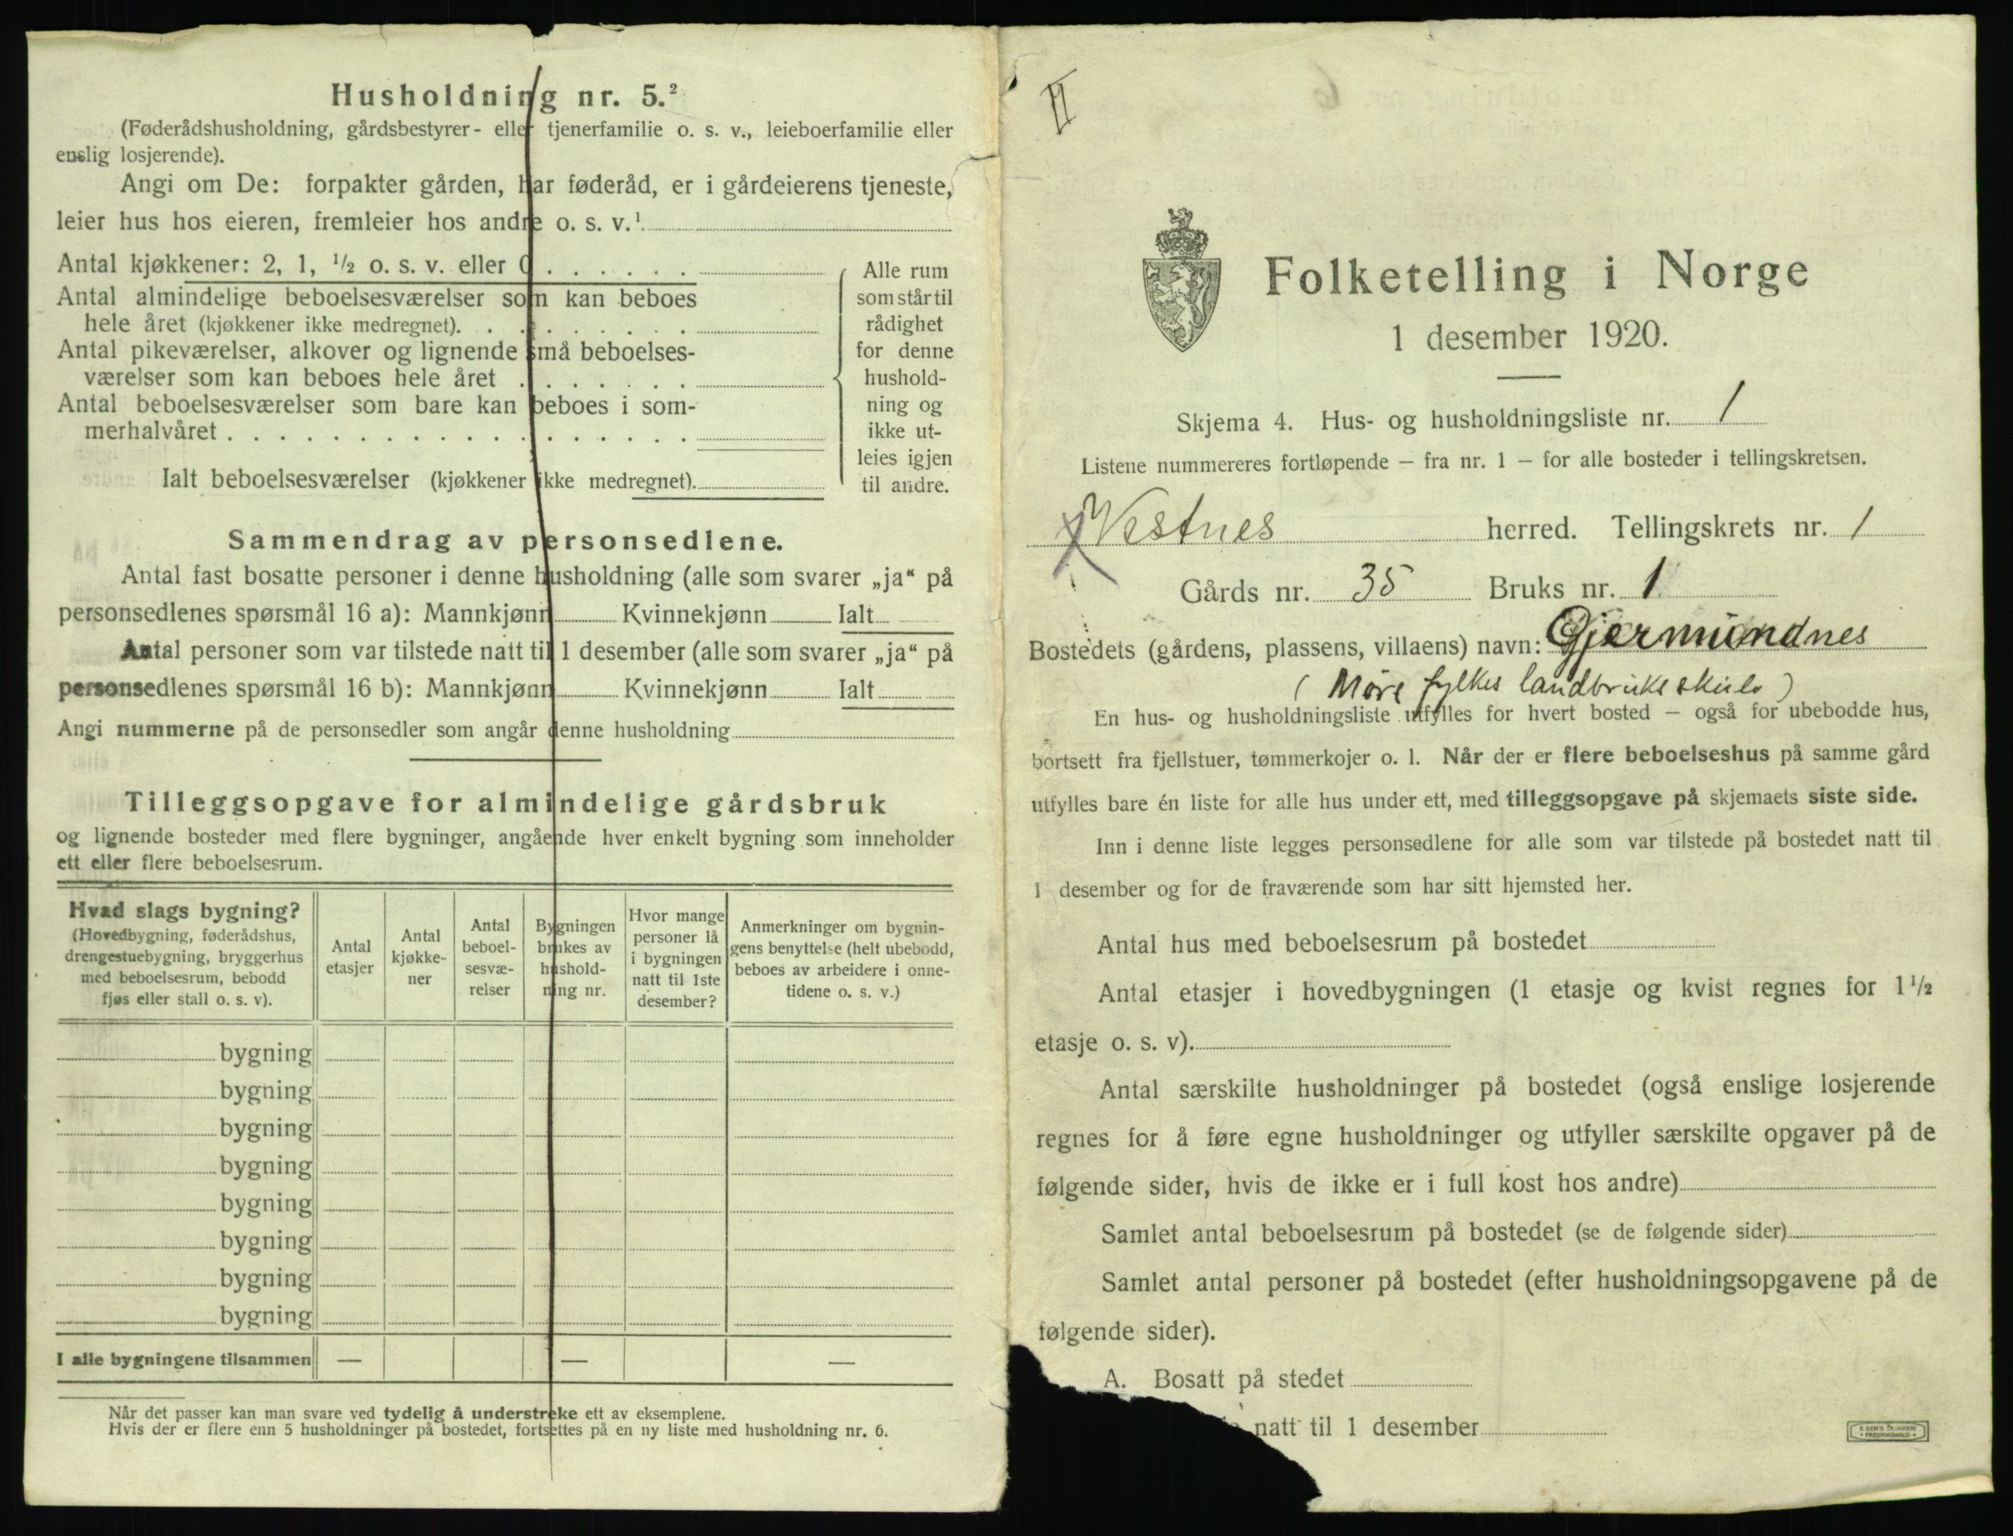 Husholdning nr. 5.²
(Føderådshusholdning, gårdsbestyrer- eller tjenerfamilie o. s. v., leieboerfamilie eller
enslig losjerende).
Angi om De: forpakter gården, har føderåd, er i gårdeierens tjeneste,
leier hus hos eieren, fremleier hos andre o. s. v.¹
Antal kjøkkener: 2, 1, ¹/₂ o. s. v. eller 0
Antal almindelige beboelsesværelser som kan beboes
hele året (kjøkkener ikke medregnet).
Antal pikeværelser, alkover og lignende små beboelses-
værelser som kan beboes hele året
Antal beboelsesværelser som bare kan beboes i som-
merhalvåret
Ialt beboelsesværelser (kjøkkener ikke medregnet).
Alle rum
som står til
rådighet
for denne
hushold-
ning og
ikke ut-
leies igjen
til andre.
Sammendrag av personsedlene.
Antal fast bosatte personer i denne husholdning (alle som svarer „ja“ på
personsedlenes spørsmål 16 a): Mannkjønn Kvinnekjønn Ialt
Antal personer som var tilstede natt til 1 desember (alle som svarer „ja“ på
personsedlenes spørsmål 16 b): Mannkjønn Kvinnekjønn Ialt
Angi nummerne på de personsedler som angår denne husholdning
Tilleggsopgave for almindelige gårdsbruk
og lignende bosteder med flere bygninger, angående hver enkelt bygning som inneholder
ett eller flere beboelsesrum.
Hvad slags bygning?
(Hovedbygning, føderådshus,
drengestuebygning, bryggerhus
med beboelsesrum, bebodd
fjøs eller stall o. s. v).
Antal
etasjer
Antal
kjøkke-
ner
Antal
beboel-
sesvæ-
relser
Bygningen
brukes av
hushold-
ning nr.
Hvor mange
personer lå
i bygningen
natt til 1ste
desember?
Anmerkninger om bygnin-
gens benyttelse (helt ubebodd,
beboes av arbeidere i onne-
tidene o. s. v.)
bygning
bygning
bygning
bygning
bygning
bygning
bygning
bygning
I alle bygningene tilsammen — — —
Når det passer kan man svare ved tydelig å understreke ett av eksemplene.
Hvis der er flere enn 5 husholdninger på bostedet, fortsettes på en ny liste med husholdning nr. 6.
II
Folketelling i Norge
1 desember 1920.
Skjema 4. Hus- og husholdningsliste nr. 1
Listene nummereres fortløpende — fra nr. 1 — for alle bosteder i tellingskretsen.
Vestnes herred. Tellingskrets nr. 1
Gårds nr. 35 Bruks nr. 1
Bostedets (gårdens, plassens, villaens) navn: Gjermundnes
(Møre fylkes landbruksskule)
En hus- og husholdningsliste utfylles for hvert bosted — også for ubebodde hus,
bortsett fra fjellstuer, tømmerkojer o. l. Når der er flere beboelseshus på samme gård
utfylles bare én liste for alle hus under ett, med tilleggsopgave på skjemaets siste side.
Inn i denne liste legges personsedlene for alle som var tilstede på bostedet natt til
1 desember og for de fraværende som har sitt hjemsted her.
Antal hus med beboelsesrum på bostedet
Antal etasjer i hovedbygningen (1 etasje og kvist regnes for 1¹/₂
etasje o. s. v).
Antal særskilte husholdninger på bostedet (også enslige losjerende
regnes for å føre egne husholdninger og utfyller særskilte opgaver på de
følgende sider, hvis de ikke er i full kost hos andre)
Samlet antal beboelsesrum på bostedet (se de følgende sider)
Samlet antal personer på bostedet (efter husholdningsopgavene på de
følgende sider).
A. Bosatt på stedet
natt til 1 desember